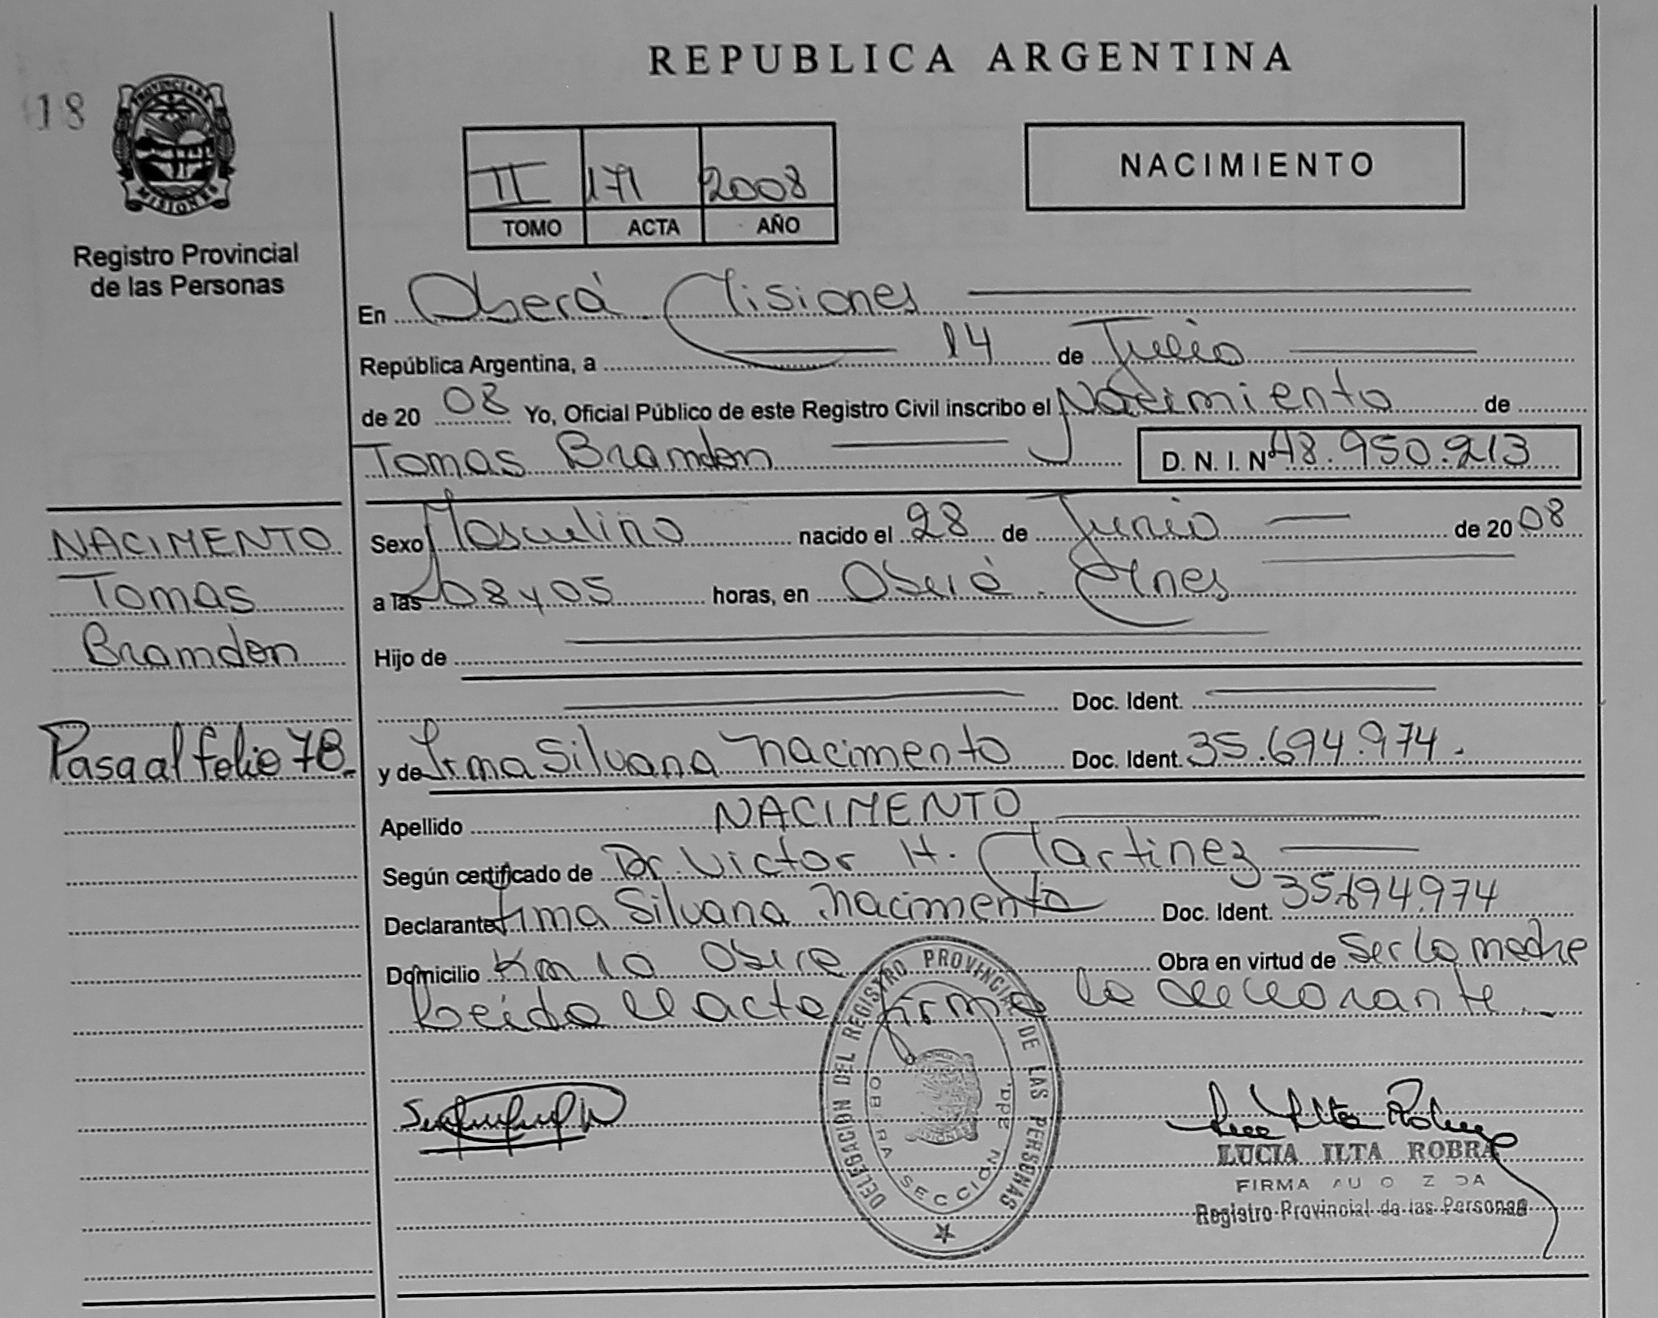 REPUBLICA ARGENTINA
18
PROVINCIA DE MISIONES
Registro Provincial
de las Personas
II 171 2008
TOMO ACTA AÑO
NACIMIENTO
En Oberá Misiones
República Argentina, a 14 de Julio
de 20 08 Yo, Oficial Público de este Registro Civil inscribo el Nacimiento de
Tomas Brandon D. N. I. Nº 48.950.213
NACIMENTO
Tomas
Brandon
Pasa al folio 78.
Sexo Masculino nacido el 28 de Junio de 20 08
a las 08 y 05 horas, en Oberá. Mnes
Hijo de
Doc. Ident.
y de Irma Silvana Nacimento Doc. Ident. 35.694.974.
Apellido NACIMENTO
Según certificado de Dr. Victor H. Martinez
Declarante Irma Silvana Nacimento Doc. Ident. 35.694.974
Domicilio Km 10 Oberá Obra en virtud de Ser la madre
Leida el acta firma la declarante
DELEGACION DEL REGISTRO PROVINCIAL DE LAS PERSONAS
OBERA SECCION 2da.
LUCIA ILTA ROBRA
FIRMA AU O Z DA
Registro Provincial de las Personas